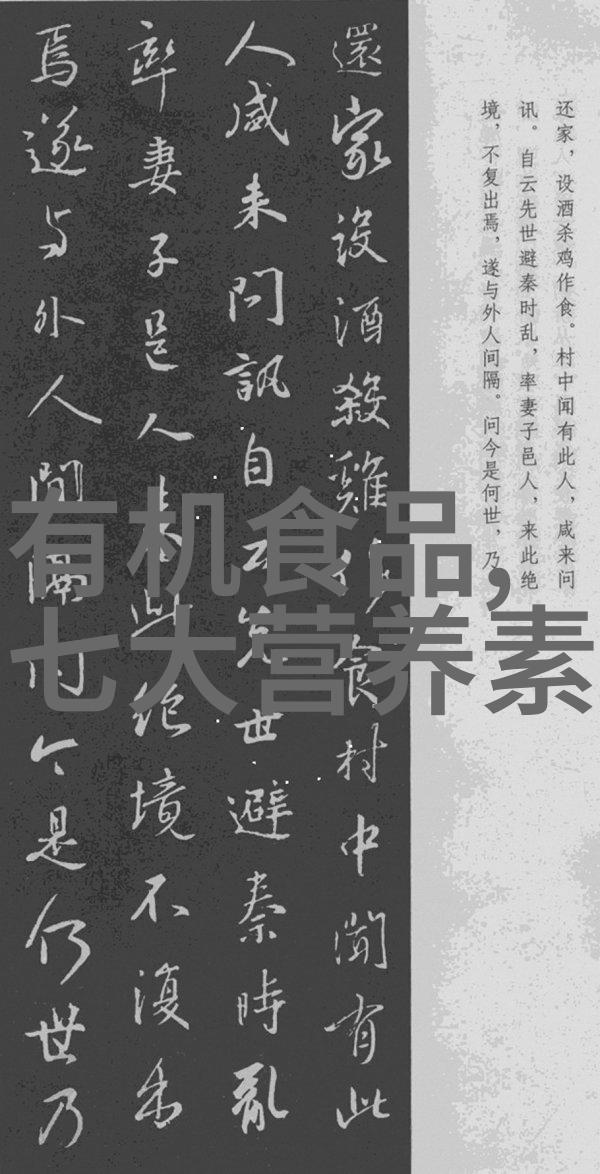 还家，设酒杀鸡作食。村中闻有此人，咸来问
讯。自云先世避秦时乱，率妻子邑人，来此绝
境，不复出焉，遂与外人间隔。问今是何世，乃
還家設酒殺雞作食村中聞有此
人咸来問訊自云先世避秦時亂
率妻子邑人来此絶境不復出
焉遂与外人間隔問今是何世乃
有机食品,
七大营养素